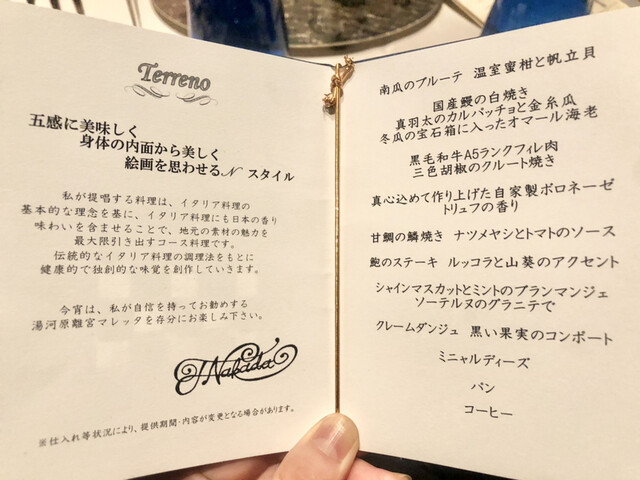 Terreno
五感に美味しく
身体の内面から美しく
絵画を思わせるN スタイル
私が提唱する料理は、イタリア料理の
基本的な理念を基に、イタリア料理にも日本の香り
味わいを含ませることで、地元の素材の魅力を
最大限引き出すコース料理です。
伝統的なイタリア料理の調理法をもとに
健康的で独創的な味覚を創作していきます。
今宵は、私が自信を持ってお勧めする
湯河原離宮マレッタを存分にお楽しみ下さい。
T Nakada
※仕入れ等状況により、提供期間・内容が変更となる場合があります。
南瓜のブルーテ 温室蜜柑と帆立貝
国産鰻の白焼き
真羽太のカルパッチョと金糸瓜
冬瓜の宝石箱に入ったオマール海老
黒毛和牛A5ランクフィレ肉
三色胡椒のクルート焼き
真心込めて作り上げた自家製ボロネーゼ
トリュフの香り
甘鯛の鱗焼き ナツメヤシとトマトのソース
鮑のステーキ ルッコラと山葵のアクセント
シャインマスカットとミントのブランマンジェ
ソーテルヌのグラニテで
クレームダンジュ 黒い果実のコンポート
ミニャルディーズ
パン
コーヒー